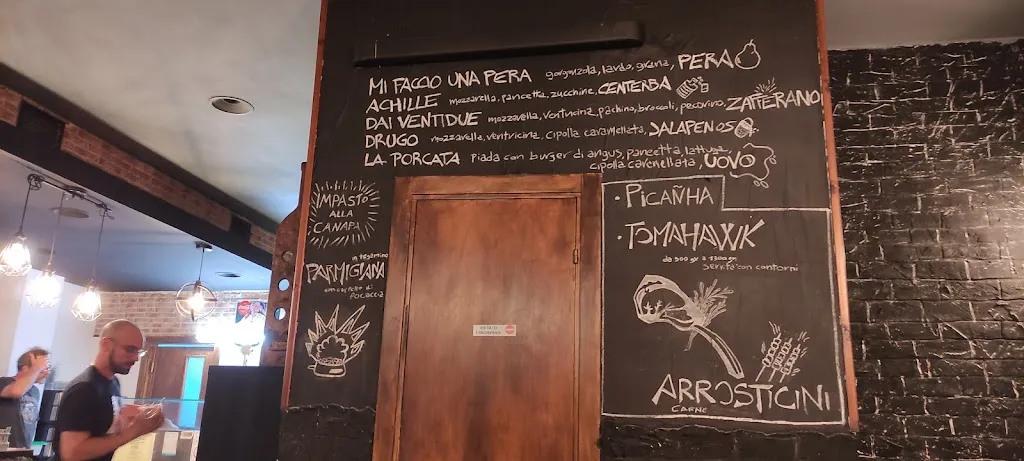 MI FACCIO UNA PERA gorgonzola, lardo, grana, PERA
ACHILLE mozzarella, pancetta, zucchine, CENTERBA
DAI VENTIDUE mozzarella, ventricina, pachino, broccoli, pecorino, ZAFFERANO
DRUGO mozzarella, ventricina, cipolla caramellata, JALAPENOS
LA PORCATA Piada con burger di angus, pancetta, lattuga,
cipolla caramellata, UOVO
IMPASTO
ALLA
CANAPA
PARMIGIANA
focaccia
• PICAÑHA
• TOMAHAWK
da 900 gr a 1300 gr
servito con contorni
ARROSTICINI
CARNE